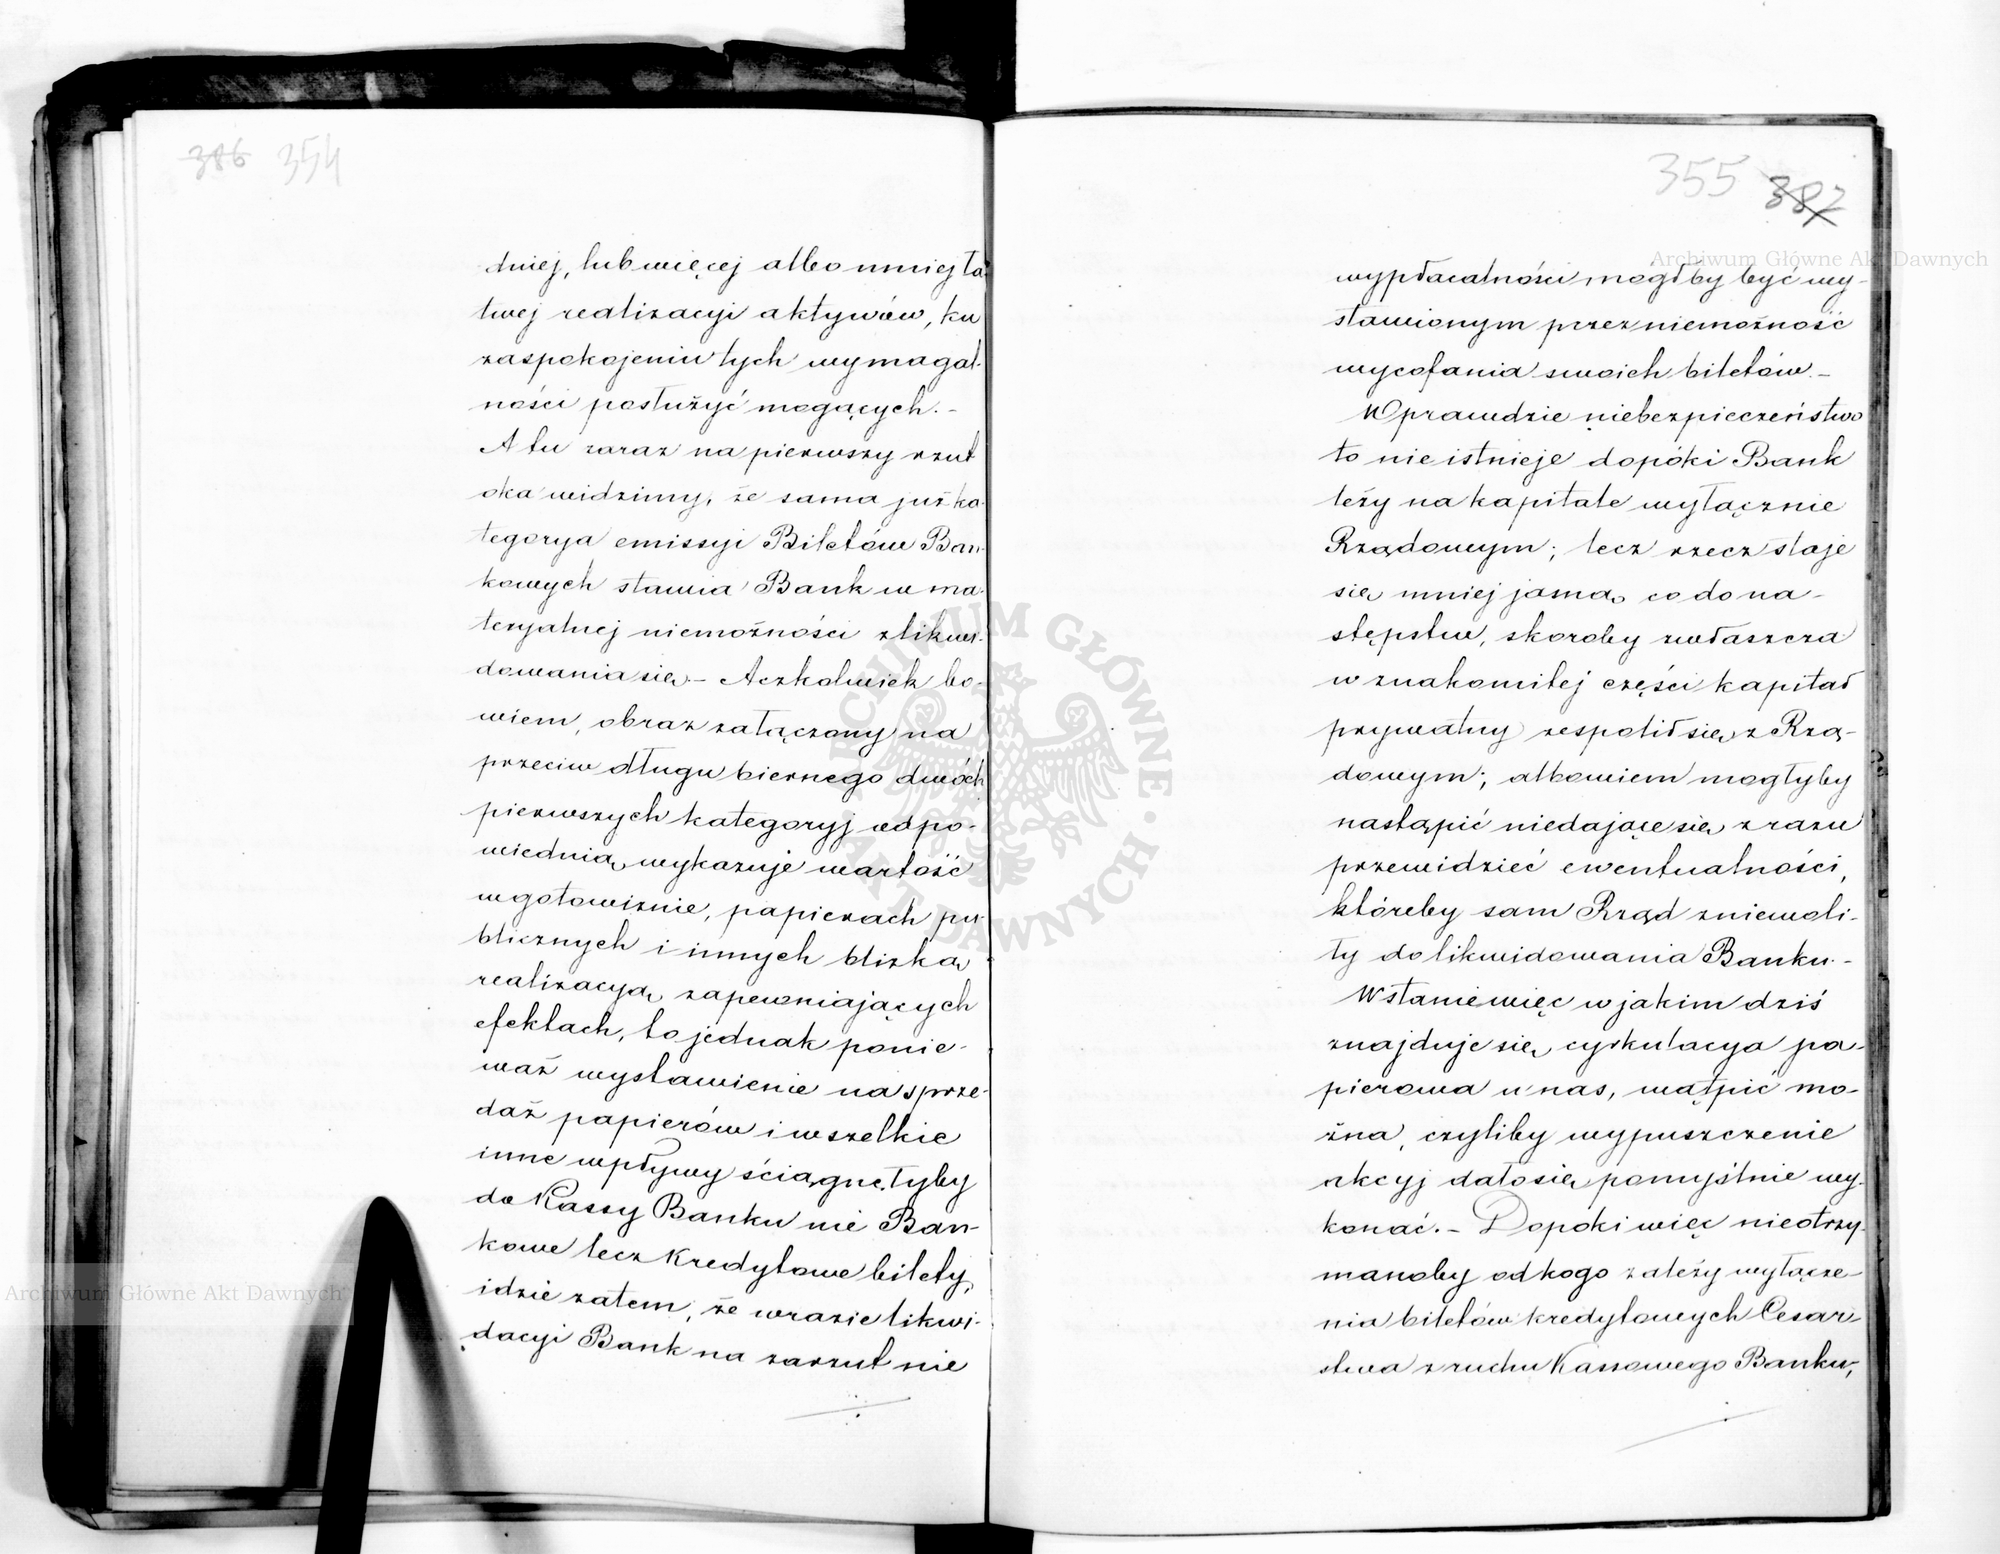 386 354
dniej, lub więcej albo mniej ła
twej realizacyi aktywów, ku
zaspokojeniu tych wymagal-
ności posłużyć mogących. –
A tu zaraz na pierwszy rzut
oka widzimy, że sama już ka-
tegorya emissyi Biletów Ban-
kowych stawia Bank w ma-
teryalnej niemożności zlikwi-
dowania się. – Aczkolwiek bo-
wiem, obraz załączony na
przeciw długu biernego dwóch
pierwszych kategoryj odpo-
wiednią wykazuje wartość
w gotowiznie, papierach pu-
blicznych i innych blizką
realizacyą zapewniających
efektach, to jednak ponie-
waż wystawienie na sprze-
daż papierów i wszelkie
inne wpływy ściągnęłyby
do Kassy Banku nie Ban-
kowe lecz Kredytowe bilety,
idzie zatem, że w razie likwi-
dacyi Bank na zarzut nie
355 387
wypłacalności mogłby być wy-
stawionym przez niemożność
wycofania swoich biletów. –
Wprawdzie niebezpieczeństwo
to nie istnieje dopóki Bank
leży na kapitale wyłącznie
Rządowym; lecz rzecz staje
się mniej jasną co do na-
stępstw, skoroby zwłaszcza
w znakomitej części kapitał
prywatny zespolił się z Rzą-
dowym; albowiem mogłyby
nastąpić niedające się zrazu
przewidzieć ewentualności,
któreby sam Rząd zniewoli-
ły do likwidowania Banku. –
W stanie więc w jakim dziś
znajduje się cyrkulacya pa-
pierowa u nas, wątpić mo-
żna, czyliby wypuszczenie
akcyj dało się pomyślnie wy-
konać. – Dopóki więc nieotrzy-
manoby od kogo zależy wyłącze-
nia biletów kredytowych Cesar-
stwa z ruchu Kassowego Banku,
Archiwum Główne Akt Dawnych
Archiwum Główne Akt Dawnych
ARCHIWUM GŁÓWNE AKT DAWNYCH